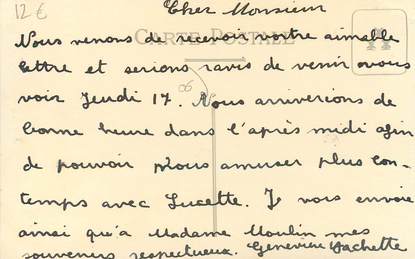 12 €
Cher Monsieur
Nous venons de recevoir votre aimable
CARTE POSTALE
lettre et serions ravis de venir vous
voir Jeudi 17. Nous arriverions de
bonne heure dans l'après midi afin
de pouvoir nous amuser plus lon-
temps avec Lucette. Je vous envoie
ainsi qu'à Madame Moulin mes
souvenirs respectueux. Geneviève Hachette